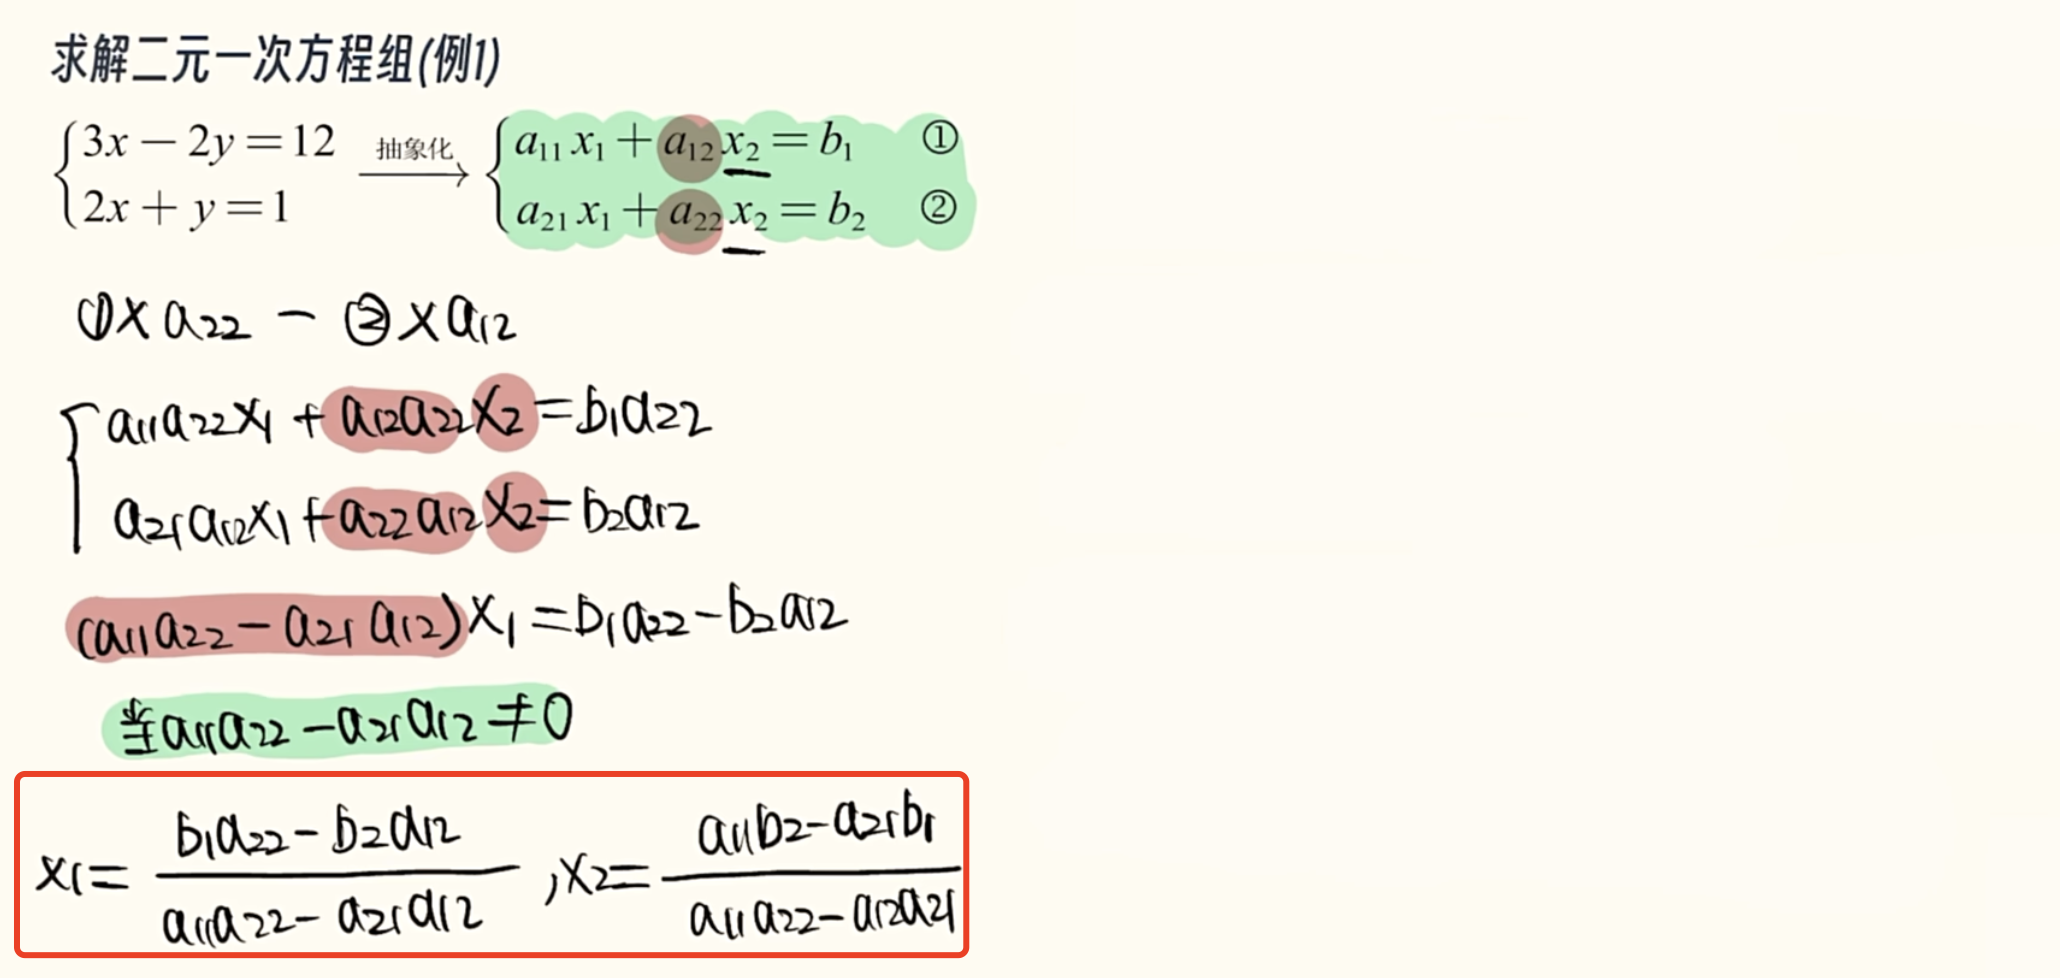 求解二元一次方程组(例1)
{3x − 2y = 12 抽象化 {a₁₁x₁ + a₁₂x₂ = b₁ ①
2x + y = 1 → a₂₁x₁ + a₂₂x₂ = b₂ ②
①×a₂₂ − ②×a₁₂
{a₁₁a₂₂x₁ + a₁₂a₂₂x₂ = b₁a₂₂
a₂₁a₁₂x₁ + a₂₂a₁₂x₂ = b₂a₁₂
(a₁₁a₂₂ − a₂₁a₁₂)x₁ = b₁a₂₂ − b₂a₁₂
当a₁₁a₂₂ − a₂₁a₁₂ ≠ 0
x₁ = (b₁a₂₂ − b₂a₁₂)/(a₁₁a₂₂ − a₂₁a₁₂) , x₂ = (a₁₁b₂ − a₂₁b₁)/(a₁₁a₂₂ − a₁₂a₂₁)